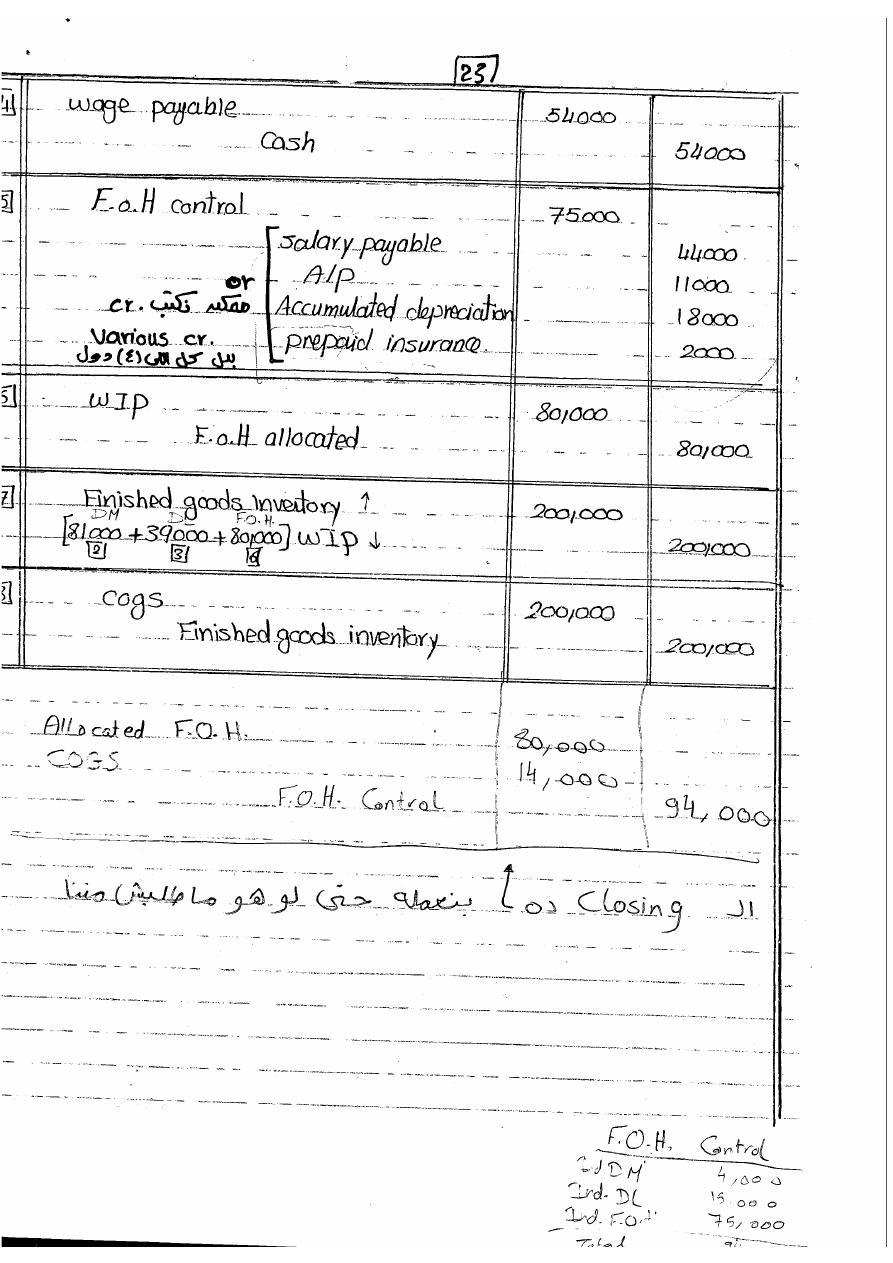 23
4
wage payable 54000
Cash 54000
5 F.o.H control 75000
salary payable 44000
or A/P 11000
ممكن نكتب cr. Accumulated depreciation 18000
Various cr. prepaid insurance 2000
بدل كل الـ(٤) دول
5 WIP 80,000
F.o.H allocated 80,000
7 Finished goods inventory ↑ 200,000
DM DL F.O.H.
[81000 + 39000 + 80,000] WIP ↓ 200,000
2 3 6
cogs 200,000
Finished goods inventory 200,000
Allocated F.O.H. 80,000
COGS 14,000
F.O.H. Control 94,000
الـ Closing ده بنعمله حتى لو هو ماطلبش مننا
F.O.H. Control
Ind DM 4,000
Ind. DL 15000
Ind. F.O.H 75,000
Total